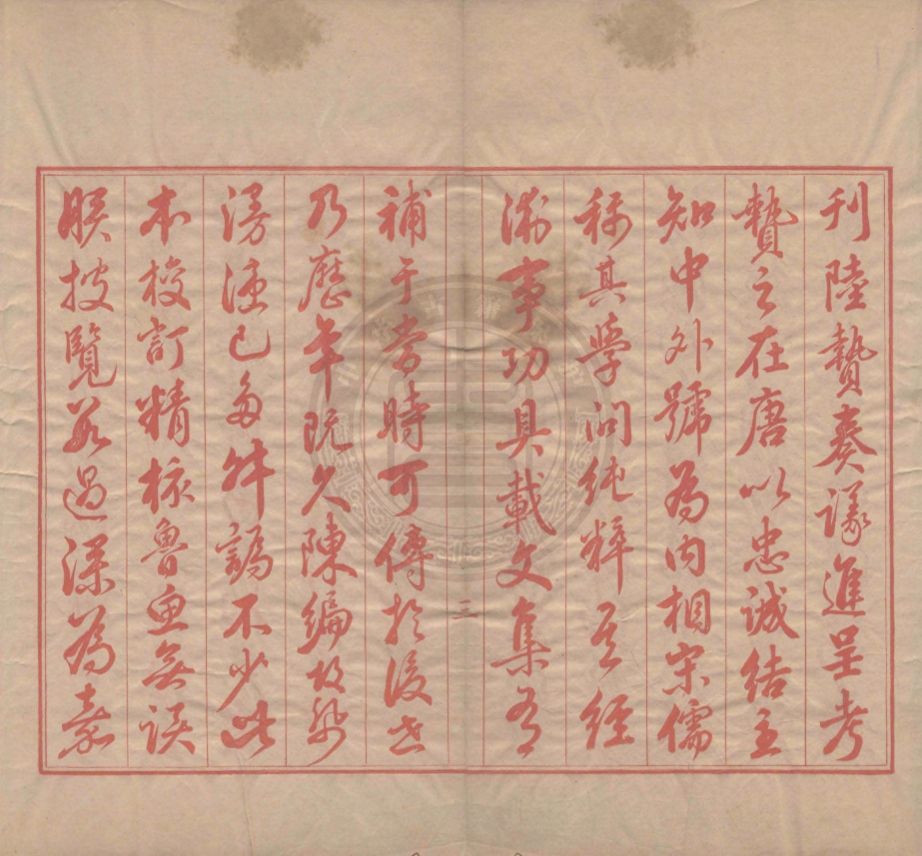 刊陸贄奏議進呈考
贄之在唐以忠誠結主
知中外號為內相宋儒
稱其學問純粹其經
濟事功具載文集有
三
補于當時可傳於後世
乃歷年既久陳編故
漫漶已多舛譌不少此
本校訂精核魯魚無誤
朕披覽過深為嘉